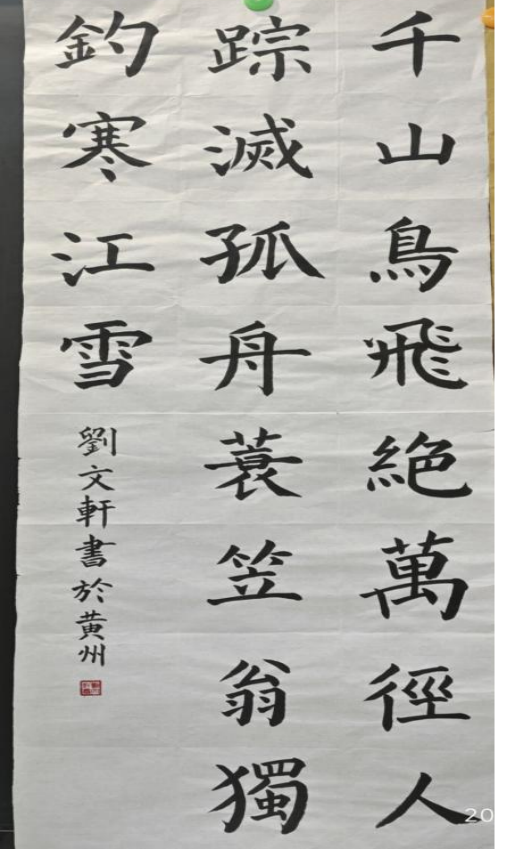 千山鳥飛絶萬徑人
踪滅孤舟蓑笠翁獨
釣寒江雪
劉文軒書於黄州
20